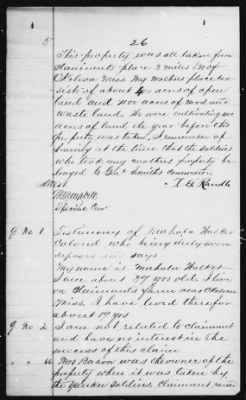 5 26
This property was all taken from
Claimants place 3 miles N of
Okolona Miss My mothers place con
sists of about 40 acres of open
land and 100 acres of wood and
waste land. We were cultivating
acres of land the year before this
property was taken. I remember of
hearing at the time that the soldiers
who took my mothers property be
longed to Gen Smiths command
Attest
Special Com
Q No 1 Testimony of
Colored who being duly sworn
deposes and says
My name is
I am about 39 yrs old. I live
on Claimants farm near Okolona
Miss. I have lived there for
about 19 yrs
Q No 2 I am not related to claimant
and have no interest in the
success of this claim
Mrs Bacon was the owner of the
property when it was taken by
the Yankee Soldiers. Claimant